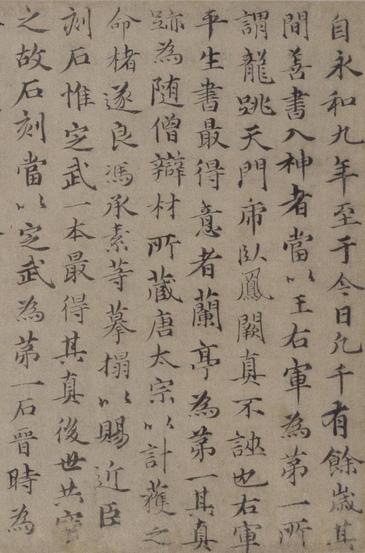 自永和九年至于今日凡千有餘歲其
間善書入神者當以王右軍為第一所
謂龍跳天門虎臥鳳闕真不誣也右軍
平生書最得意者蘭亭為第一其真
跡為隨僧辯材所藏唐太宗以計獲之
命楮遂良馮承素等摹搨以賜近臣
刻石惟定武一本最得其真後世共寶
之故石刻當以定武為第一石晉時為